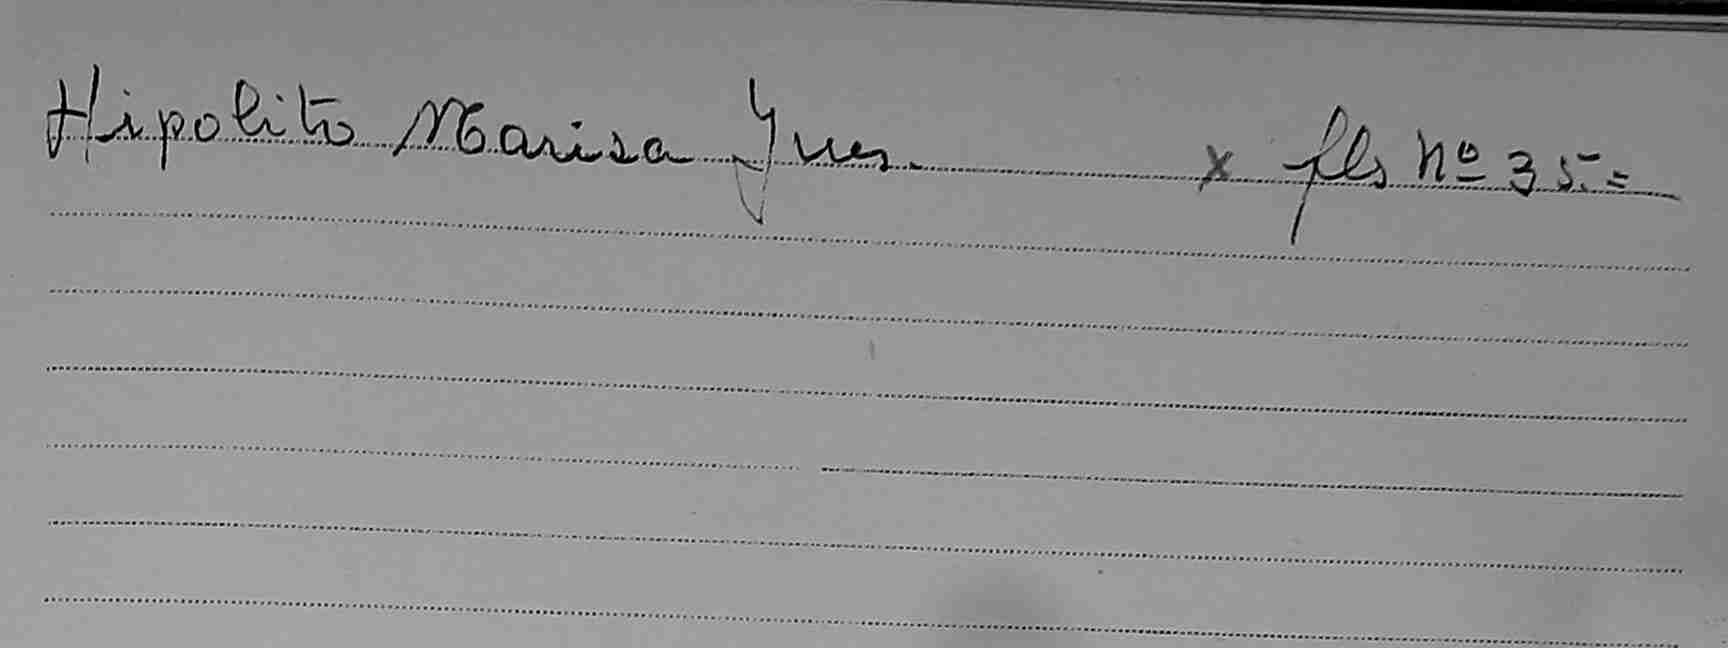 Hipolito Marisa Ynes. x fls nº 35.=